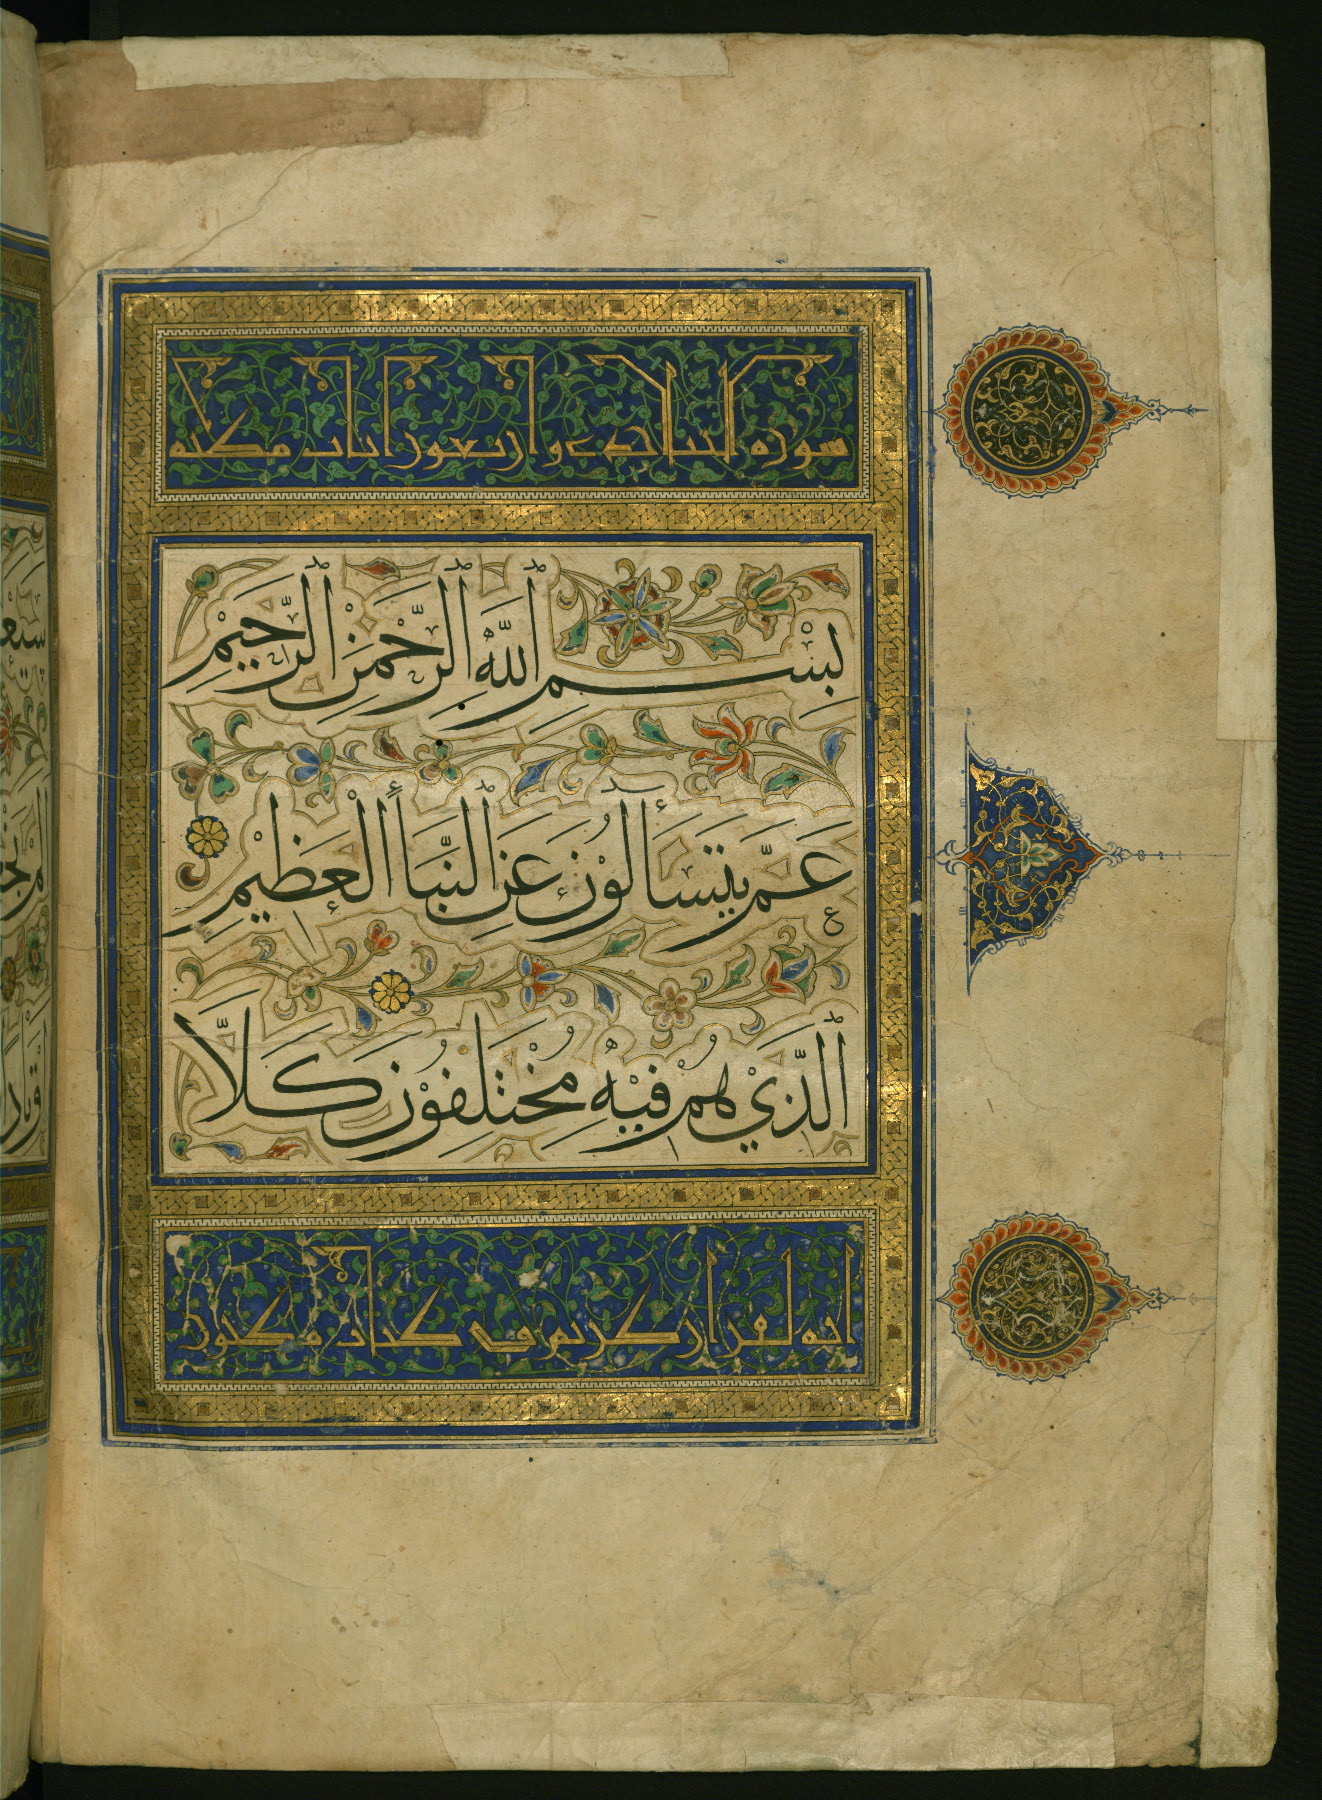 سورة النبا احدى واربعون ايات مكية
بِسْمِ اللَّهِ الرَّحْمَنِ الرَّحِيمِ
عَمَّ يَتَسَاَلُوْنَ عَنِ النَّبَأِ الْعَظِيْمِ
الَّذِيْ هُمْ فِيْهِ مُخْتَلِفُوْنَ كَلَّا
انه لقران كريم في كتاب مكنون